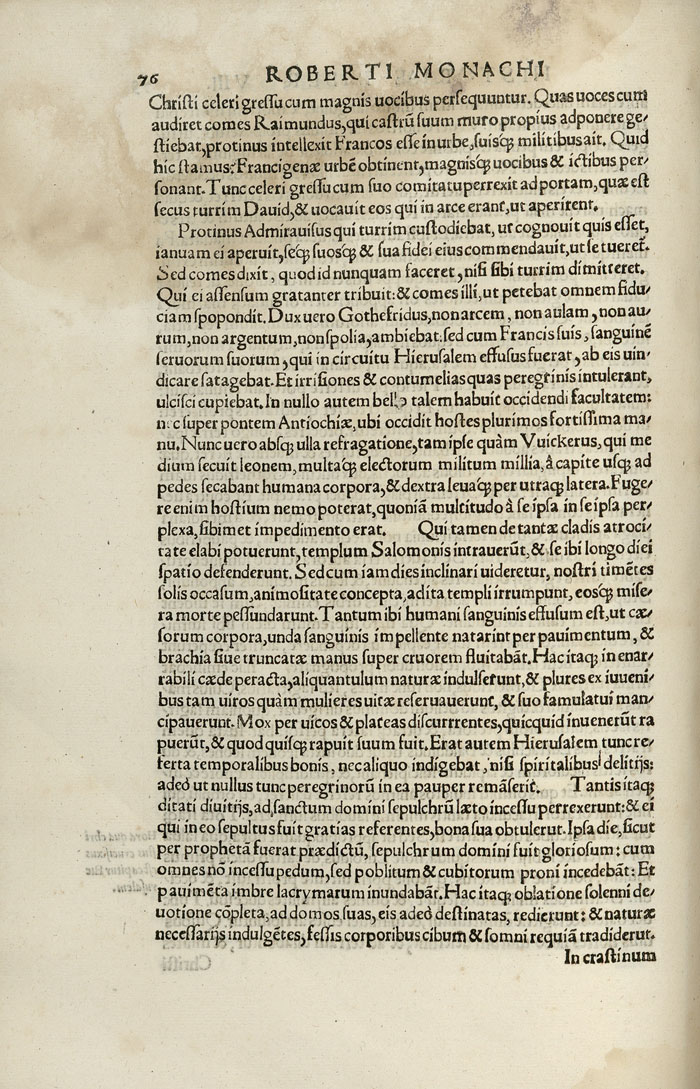 76 ROBERTI MONACHI
Christi celeri gressu cum magnis uocibus persequuntur. Quas uoces cum
audiret comes Raimundus, qui castrũ suum muro propius adponere ge-
stiebat, protinus intellexit Francos esse in urbe, suisq; militibus ait. Quid
hic stamus? Francigenæ urbẽ obtinent, magnisq; uocibus & ictibus per-
sonant. Tunc celeri gressu cum suo comitatu perrexit ad portam, quæ est
secus turrim Dauid, & uocauit eos qui in arce erant, ut aperirent.
Protinus Admirauisus qui turrim custodiebat, ut cognouit quis esset,
ianuam ei aperuit, seq; suosq; & sua fidei eius commendauit, ut se tueret.
Sed comes dixit, quod id nunquam faceret, nisi sibi turrim dimitteret.
Qui ei assensum gratanter tribuit: & comes illi, ut petebat omnem fidu-
ciam spopondit. Dux uero Gothefridus, non arcem, non aulam, non au-
rum, non argentum, non spolia, ambiebat. sed cum Francis suis, sanguinẽ
seruorum suorum, qui in circuitu Hierusalem effusus fuerat, ab eis uin-
dicare satagebat. Et irrisiones & contumelias quas peregrinis intulerant,
ulcisci cupiebat. In nullo autem bello talem habuit occidendi facultatem:
nec super pontem Antiochiæ, ubi occidit hostes plurimos fortissima ma-
nu. Nunc uero absq; ulla refragatione, tam ipse quàm Vuickerus, qui me
dium secuit leonem, multaq; electorum militum millia, à capite usq; ad
pedes secabant humana corpora, & dextra leuaq; per utraq; latera. Fuge-
re enim hostium nemo poterat, quoniã multitudo à se ipsa in se ipsa per-
plexa, sibimet impedimento erat. Qui tamen de tantæ cladis atroci-
tate elabi potuerunt, templum Salomonis intrauerũt, & se ibi longo diei
spatio defenderunt. Sed cum iam dies inclinari uideretur, nostri timẽtes
solis occasum, animositate concepta, adita templi irrumpunt, eosq; mise-
ra morte pessundarunt. Tantum ibi humani sanguinis effusum est, ut cæ-
sorum corpora, unda sanguinis impellente natarint per pauimentum, &
brachia siue truncatæ manus super cruorem fluitabãt. Hac itaq; in enar-
rabili cæde peracta, aliquantulum naturæ indulserunt, & plures ex iuueni-
bus tam uiros quàm mulieres uitæ reseruauerunt, & suo famulatui man-
cipauerunt. Mox per uicos & plateas discurrentes, quicquid inuenerũt ra
puerũt, & quod quisq; rapuit suum fuit. Erat autem Hierusalem tunc re-
ferta temporalibus bonis, nec aliquo indigebat, nisi spiritalibus delitijs:
adeò ut nullus tunc peregrinorũ in ea pauper remãserit. Tantis itaq;
ditati diuitijs, ad sanctum domini sepulchrũ læto incessu perrexerunt: & ei
qui in eo sepultus fuit gratias referentes, bona sua obtulerut. Ipsa die, sicut
per prophetã fuerat prædictũ, sepulchrum domini fuit gloriosum: cum
omnes nõ incessu pedum, sed poblitum & cubitorum proni incedebãt: Et
pauimẽta imbre lacrymarum inundabãt. Hac itaq; oblatione solenni de-
uotione cõpleta, ad domos suas, eis adeò destinatas, redierunt: & naturæ
necessarijs indulgẽtes, fessis corporibus cibum & somni requiã tradiderut.
In crastinum